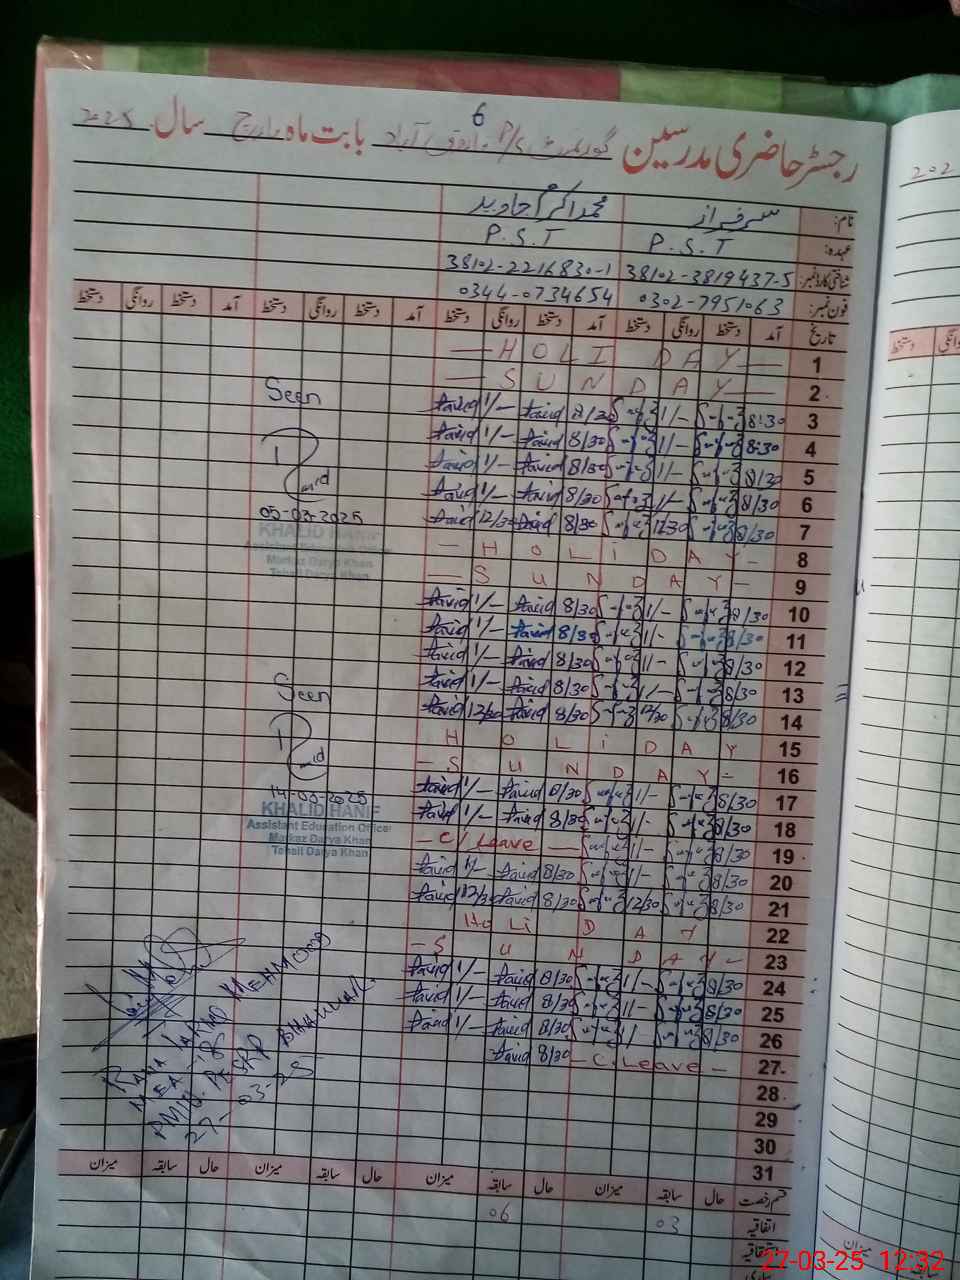 6
رجسٹر حاضری مدرسین گورنمنٹ P/S فاروق آباد بابت ماہ مارچ سال 2025
نام: سرفراز محمد اکرم جاوید
عہدہ: P.S.T P.S.T
شناختی کارڈ نمبر: 38102-3819437-5 38102-2216830-1
فون نمبر: 0302-7951063 0344-0734654
تاریخ آمد دستخط روانگی دستخط آمد دستخط روانگی دستخط آمد دستخط روانگی دستخط آمد دستخط روانگی دستخط
— HOLIDAY — 1
— SUNDAY — 2
Javid 1/- Javid 8/30 1/- 8:30 3
Javid 1/- Javid 8/30 1/- 8:30 4
Javid 1/- Javid 8/30 1/- 8/30 5
Javid 1/- Javid 8/30 1/- 8/30 6
Javid 12/30 Javid 8/30 12/30 8/30 7
— HOLIDAY — 8
— SUNDAY — 9
Javid 1/- Javid 8/30 1/- 8/30 10
Javid 1/- Javid 8/30 1/- 8/30 11
Javid 1/- Javid 8/30 1/- 8/30 12
Javid 1/- Javid 8/30 1/- 8/30 13
Javid 12/30 Javid 8/30 12/30 8/30 14
HOLIDAY 15
— SUNDAY — 16
Javid 1/- Javid 8/30 1/- 8/30 17
Javid 1/- Javid 8/30 1/- 8/30 18
— C/Leave — 1/- 8/30 19
Javid 1/- Javid 8/30 1/- 8/30 20
Javid 12/30 Javid 8/30 12/30 8/30 21
HOLIDAY 22
— SUNDAY — 23
Javid 1/- Javid 8/30 1/- 8/30 24
Javid 1/- Javid 8/30 1/- 8/30 25
Javid 1/- Javid 8/30 1/- 8/30 26
Javid 8/30 — C.Leave — 27
28
29
30
31
Seen
05-03-2025
KHALID HANIF
Assistant Education Officer
Markaz Darya Khan
Tehsil Darya Khan
Seen
14-03-2025
KHALID HANIF
Assistant Education Officer
Markaz Darya Khan
Tehsil Darya Khan
RANA TARIQ MEHMOOD
MEA-18
BHAKKAR
27-03-25
قسم رخصت حال سابقہ میزان حال سابقہ میزان حال سابقہ میزان حال سابقہ میزان
اتفاقیہ 03 06
202
دستخط
میزان
27-03-25 12:32